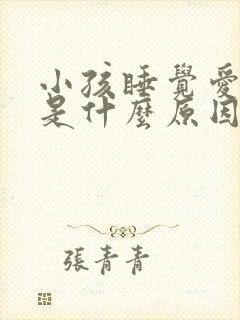 小孩睡覺愛
是什麼原因
張青青